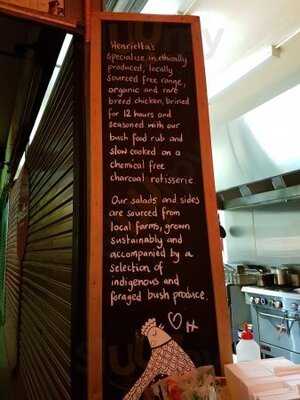 Henrietta's
Specialise in ethically
produced, locally
sourced free range,
organic and rare
breed chicken, brined
for 12 hours and
seasoned with our
bush food rub and
slow cooked on a
chemical free
charcoal rotisserie.
Our salads and sides
are sourced from
local farms, grown
sustainably and
accompanied by a
selection of
indigenous and
foraged bush produce.
H